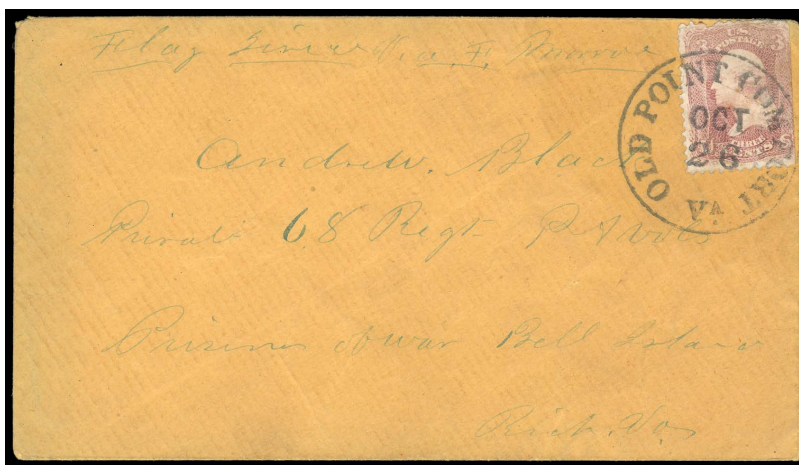 Flag Truce Via. Ft. Monroe
U.S.
POSTAGE
3 3
THREE
CENTS
OLD POINT COMFORT
OCT
26
VA
Andrew. Black
Private 68 Regt. PA Vols
Prisoner of war Bell Island
Rich. Va